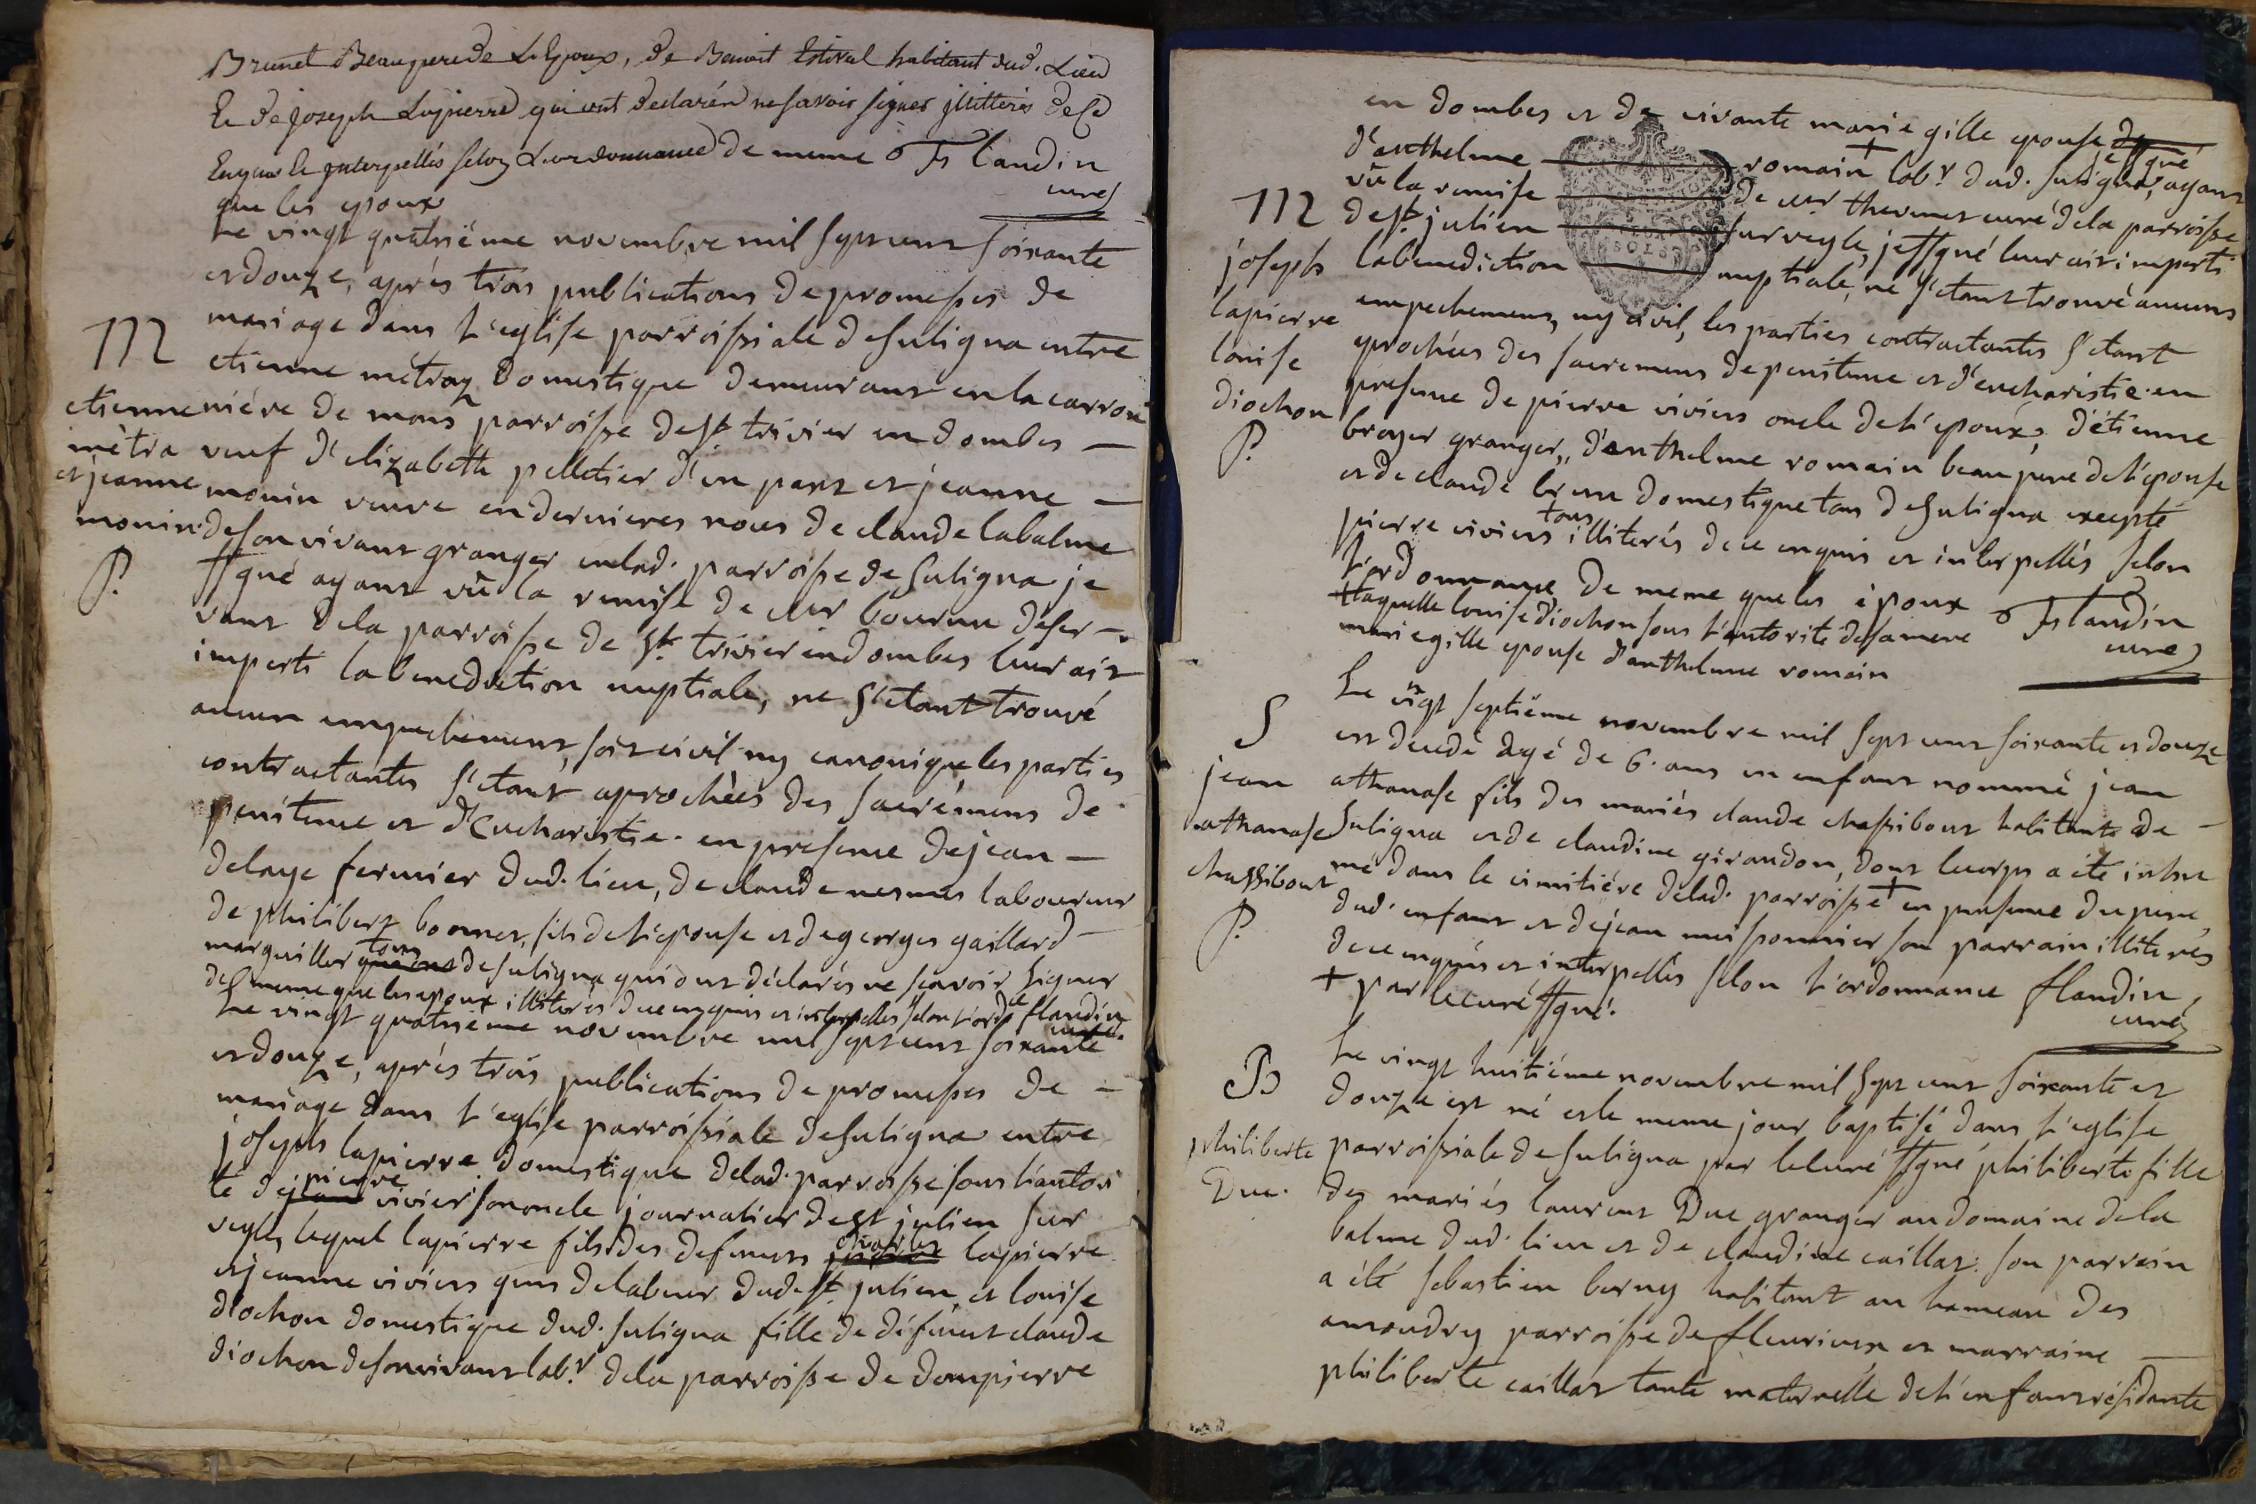 Brunet Beaupere de L'Epoux, de Benoit Estival habitant dud. Lieu
Et de joseph Lapierre qui ont declaré ne savoir signer jllitterés de Ce
Enquis Et jnterpellés selon Lordonnance de meme Flandin
que les epoux curé
Le vingt quatriéme novembre mil sept cent soixante
et douze, aprés trois publications de promesses de
mariage dans l'eglise parroissiale de suligna entre
M
etienne métraz domestique demeurant en la carron
etienne
métra
et jeanne
monin
P.
niére de mons parroisse de st. trivier en dombes —
veuf d'elizabeth pelletier d'un part et jeanne —
monin veuve en dernieres noces de claude labalme
de son vivant granger en lad. parroisse de suligna je
ssgné ayant vû la remise de mr bourun deser-
vant de la parroisse de st. trivier en dombes leur ai
imperti la benediction nuptiale, ne s'etant trouvé
aucun empechement, soit civil ny canonique les parties
contractantes s'etant aprochées des sacrémens de
penitence et d'Eucharistie. en presence de jean —
delaye fermier dud. lieu, de claude nesmes laboureur
de philibert bonnet, fils de l'epouse et de georges gaillard —
marguiller tous de suligna qui ont déclarés ne scavoir signer
de meme que les epoux illiterés de ce enquis et interpellés selon l'ordce flandin
curé.
Le vingt quatriéme novembre mil sept cent soixante
et douze, aprés trois publications de promesses de —
mariage dans l'eglise parroissiale de suligna entre
joseph lapierre domestique de lad. parroisse sous l'autori
té de jean pierre vivier son oncle journalier de st julien sur
vegle, lequel lapierre fils des defunts charles lapierre
et jeanne viviers gens de labeur dud. st. julien et louise
diochon domestique dud. suligna fille de défunt claude
diochon de son vivant labr. de la parroisse de dompierre
en dombes et de vivante marie gille epouse de
d'anthelme romain + labr. dud. suligna, je ssgné ayant
vû la remise de mr thevenet curé de la parroisse
M
joseph
lapierre
louise
diochon
P.
de st. julien sur vegle, je ssgné leur ai imperti
la benediction nuptiale, ne s'etant trouvé aucuns
empechemens, ny civil, les parties contractantes s'etant
aprochées des sacremens de penitence et d'eucharistie. en
presence de pierre viviers oncle de l'epoux, d'étienne
broyer granger, d'anthelme romain beau pere de l'epouse
et de claude brun domestique tous de suligna excepté
pierre viviers tous illiterés de ce enquis et interpellés selon
l'ordonnance de meme que les époux Flandin
+ laquelle louise diochon sous l'autorité de sa mere curé
marie gille epouse d'anthelme romain
Le vigt septiéme novembre mil sept cent soixante et douze
S
jean
athanase
chassibout
P.
est decedé agé de 6. ans un enfant nommé jean
athanase fils des mariés claude chassibout habitant de —
suligna et de claudine girandon, dont le corps a été inhu
mé dans le cimitiére de lad. parroisse + en presence du pere
dud. enfant et de jean meissonnier son parrain illiterés
de ce enquis et interpellés selon l'ordonnance flandin
+ par le curé ssgné. curé
Le vingt huitiéme novembre mil sept cent soixante et
B
philiberte
Duc.
douze est né et le meme jour baptisé dans l'eglise
parroissiale de suligna par le curé ssgné philiberte fille
des mariés laurent Duc granger au domaine de la
balme dud. lieu et de claudine caillat. son parrain
a été sebastien berny habitant au hameau des
amoudry parroisse de fleurieux et marraine —
philiberte caillat tante maternelle de l'enfant résidante